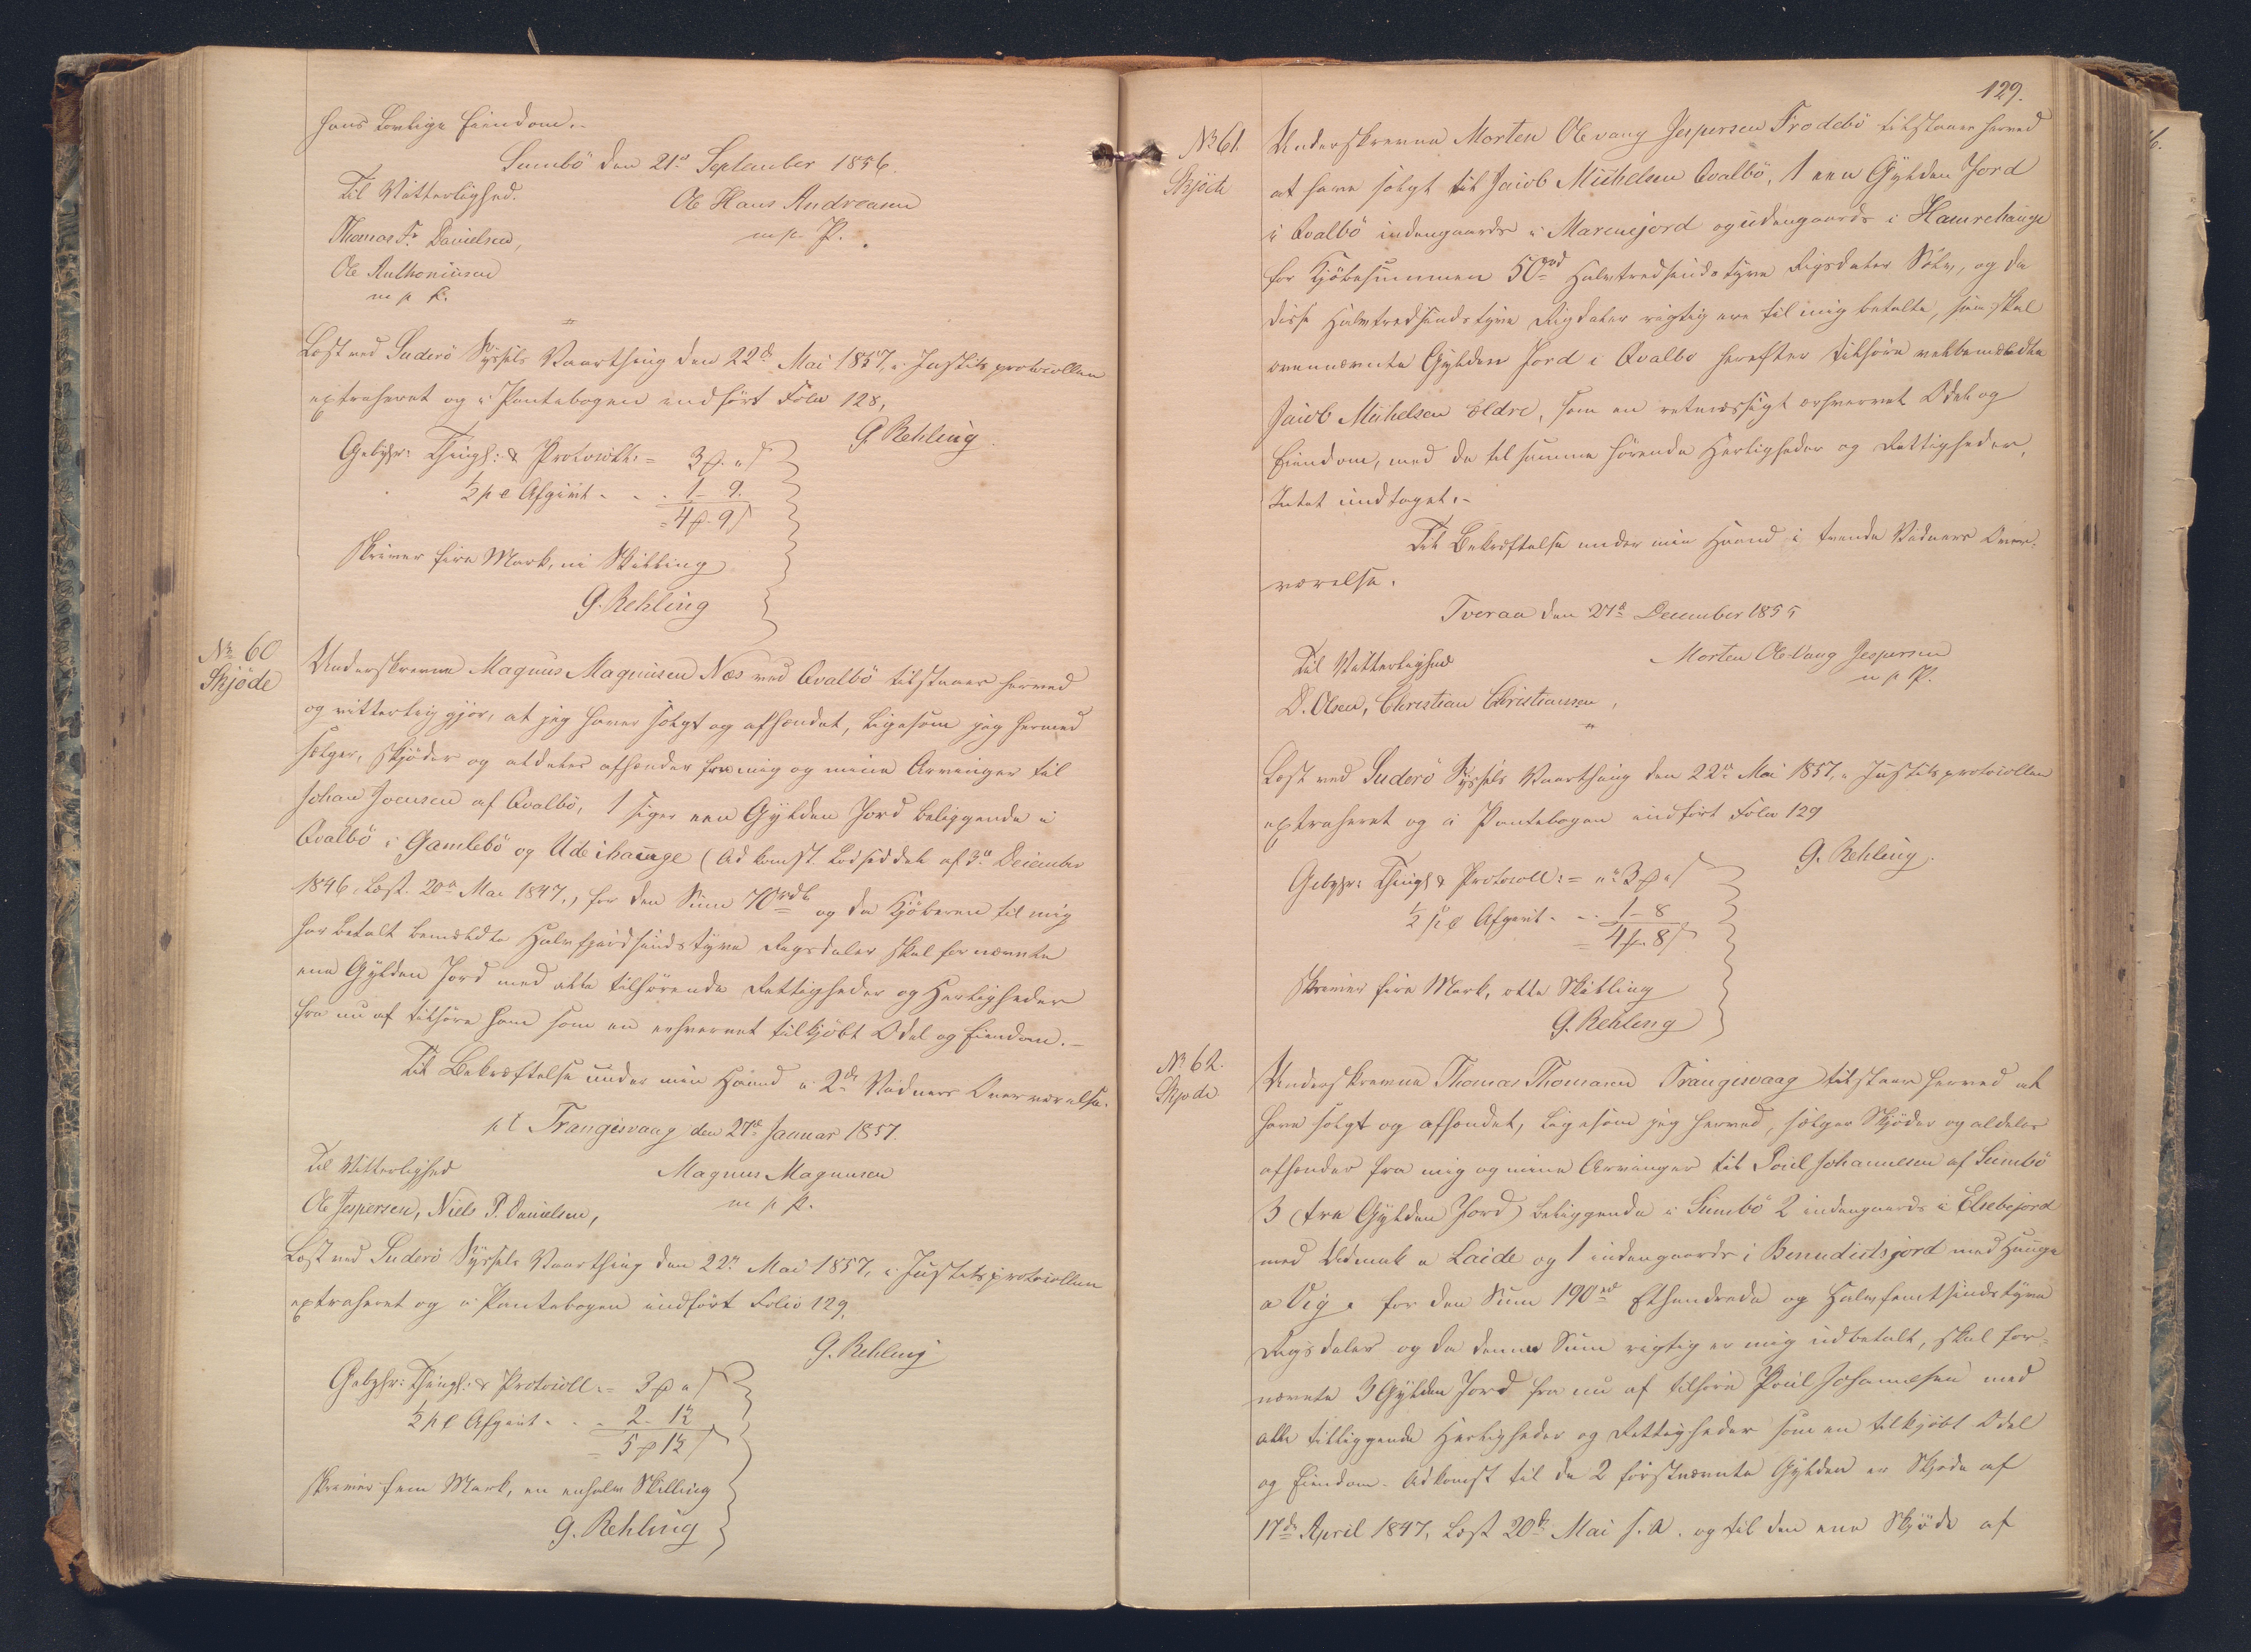 hans lovlige Eiendom.-
Sumbö den 21de September 1856.
Til Vitterlighed.
Ole Hans Andreasen
Thomas Fr. Danielsen,
m. p. P.
Ole Anthoniusen
m p P.
Læst ved Suderö Syssels Vaarthing den 22de Mai 1857, i Justitsprotocollen
extraheret og i Pantebogen indfört Folio 128,
G. Rehling.
Gebyhr: Thingl: & Protocoll: = 3 ₰ " ß
½ p C Afgivt - - - 1 - 9.
= 4 ₰ - 9 ß
skriver fire Mark, ni Skilling
G. Rehling
No 60
Skjöde
Underskrevne Magnus Magnusen Næs ved Qvalbö tilstaaer herved
og vitterlig gjör, at jeg haver solgt og afhændet, ligesom jeg hermed
sælger, skjöder og aldeles afhænder fra mig og mine Arvinger til
Johan Joensen af Qvalbö, 1 siger een Gylden Jord beliggende i
Qvalbö i Gamlebö og Udeihauge (Adkomst Lodseddel af 3de December
1846, læst 20de Mai 1847,) for den Sum 70 rdl og da Kjöberen til mig
har betalt bemeldte Halvfjerdsindstyve Rigsdaler skal fornævnte
ene Gylden Jord med alle tilhörende Rettigheder og Herligheder
fra nu af tilhöre ham som en erhvervet tilkjöbt Odel og Eiendom.-
Til Bekræftelse under min Haand i 2de Vidners Overværelse.
pt Trangisvaag den 27de Januar 1857.
Til Vitterlighed
Magnus Magnusen
Ole Jespersen, Niels P. Danielsen,
m p P.
Læst ved Suderö Syssels Vaarthing den 22de Mai 1857, i Justitsprotocollen
extraheret og i Pantebogen indfört Folio 129,
G. Rehling
Gebyhr: Thingl: & Protocoll: = 3 ₰ " ß
½ p C Afgivt - - - 2 - 1½
= 5 ₰ 1½ ß
skriver fem Mark, en enhalv Skilling
G. Rehling
129.
No 61.
Skjöde
Underskrevne Morten Olevang Jespersen Frodebö tilstaaer herved
at have solgt til Jacob Michelsen Qvalbö, 1 een Gylden Jord
i Qvalbö indengaards i Marenejord og udengaards i Hamrehauge
for Kjöbesummen 50 rd Halvtredsindstyve Rigsdaler Sölv, og da
disse Halvtredsindstyve Rigdaler rigtig ere til mig betalte, saa skal
ovennævnte Gylden Jord i Qvalbö herefter tilhöre velbemeldte
Jacob Michelsen ældre, som en retmæssigt erhvervet Odel og
Eiendom, med de til samme hörende Herligheder og Rettigheder,
Intet undtaget.-
Til Bekræftelse under min Haand i tvende Vidners Over-
værelse.
Tveraa den 27de December 1855
Til Vitterlighed
Morten Ole Vang Jespersen
m p P.
D. Olsen, Christian Christiansen,
Læst ved Suderö Syssels Vaarthing den 22de Mai 1857, i Justitsprotocollen
extraheret og i Pantebogen indfört Folio 129
G. Rehling.
Gebyhr: Thingl & Protocoll: = " 3 ₰ " ß
½ p C Afgivt - - - 1 - 8
= 4 ₰ - 8 ß
skriver fire Mark, otte Skilling
G. Rehling
No 62.
Skjöde
Underskrevne Thomas Thomasen Trangisvaag tilstaaer herved at
have solgt og afhændet, ligesom jeg herved, sælger Skjöder og aldeles
afhænder fra mig og mine Arvinger til Poul Johannesen af Sumbö
3 (tre Gylden Jord) beliggende i Sumbö 2 indengaards i Elsebejord
med Udmark a Laide og 1 indengaards i Benedictsjord med Hauge
a Vig. for den Sum 190 rd Ethundrede og Halvfemtsindstyve
Rigsdaler og da denne Sum rigtig er mig udbetalt, skal for-
nævnte 3 Gylden Jord fra nu af tilhöre Poul Johannesen med
alle tilliggende Herligheder og Rettigheder som en tilkjöbt Odel
og Eiendom. Adkomst til de 2 förstnævnte Gylden er Skjöde af
17de April 1847, læst 20de Mai s. A. og til den ene Skjöde af